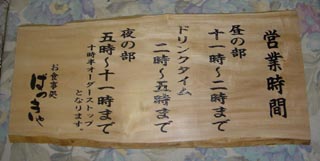 営業時間
昼の部
十一時〜二時まで
ドリンクタイム
二時〜五時まで
夜の部
五時〜十一時まで
十時半オーダーストップ
となります。
お食事処